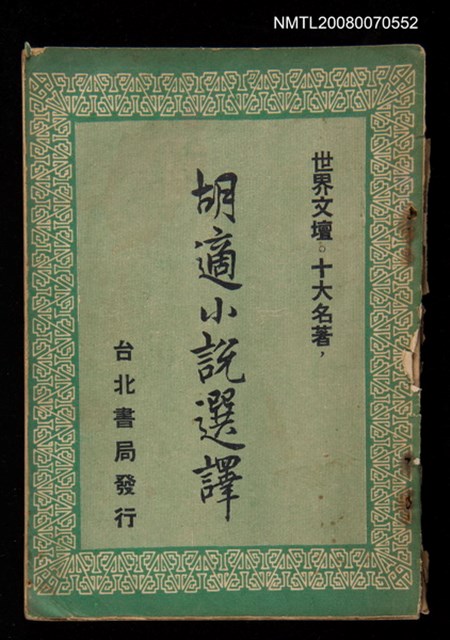 NMTL20080070552
世界文壇。十大名著，
胡適小說選譯
台北書局發行